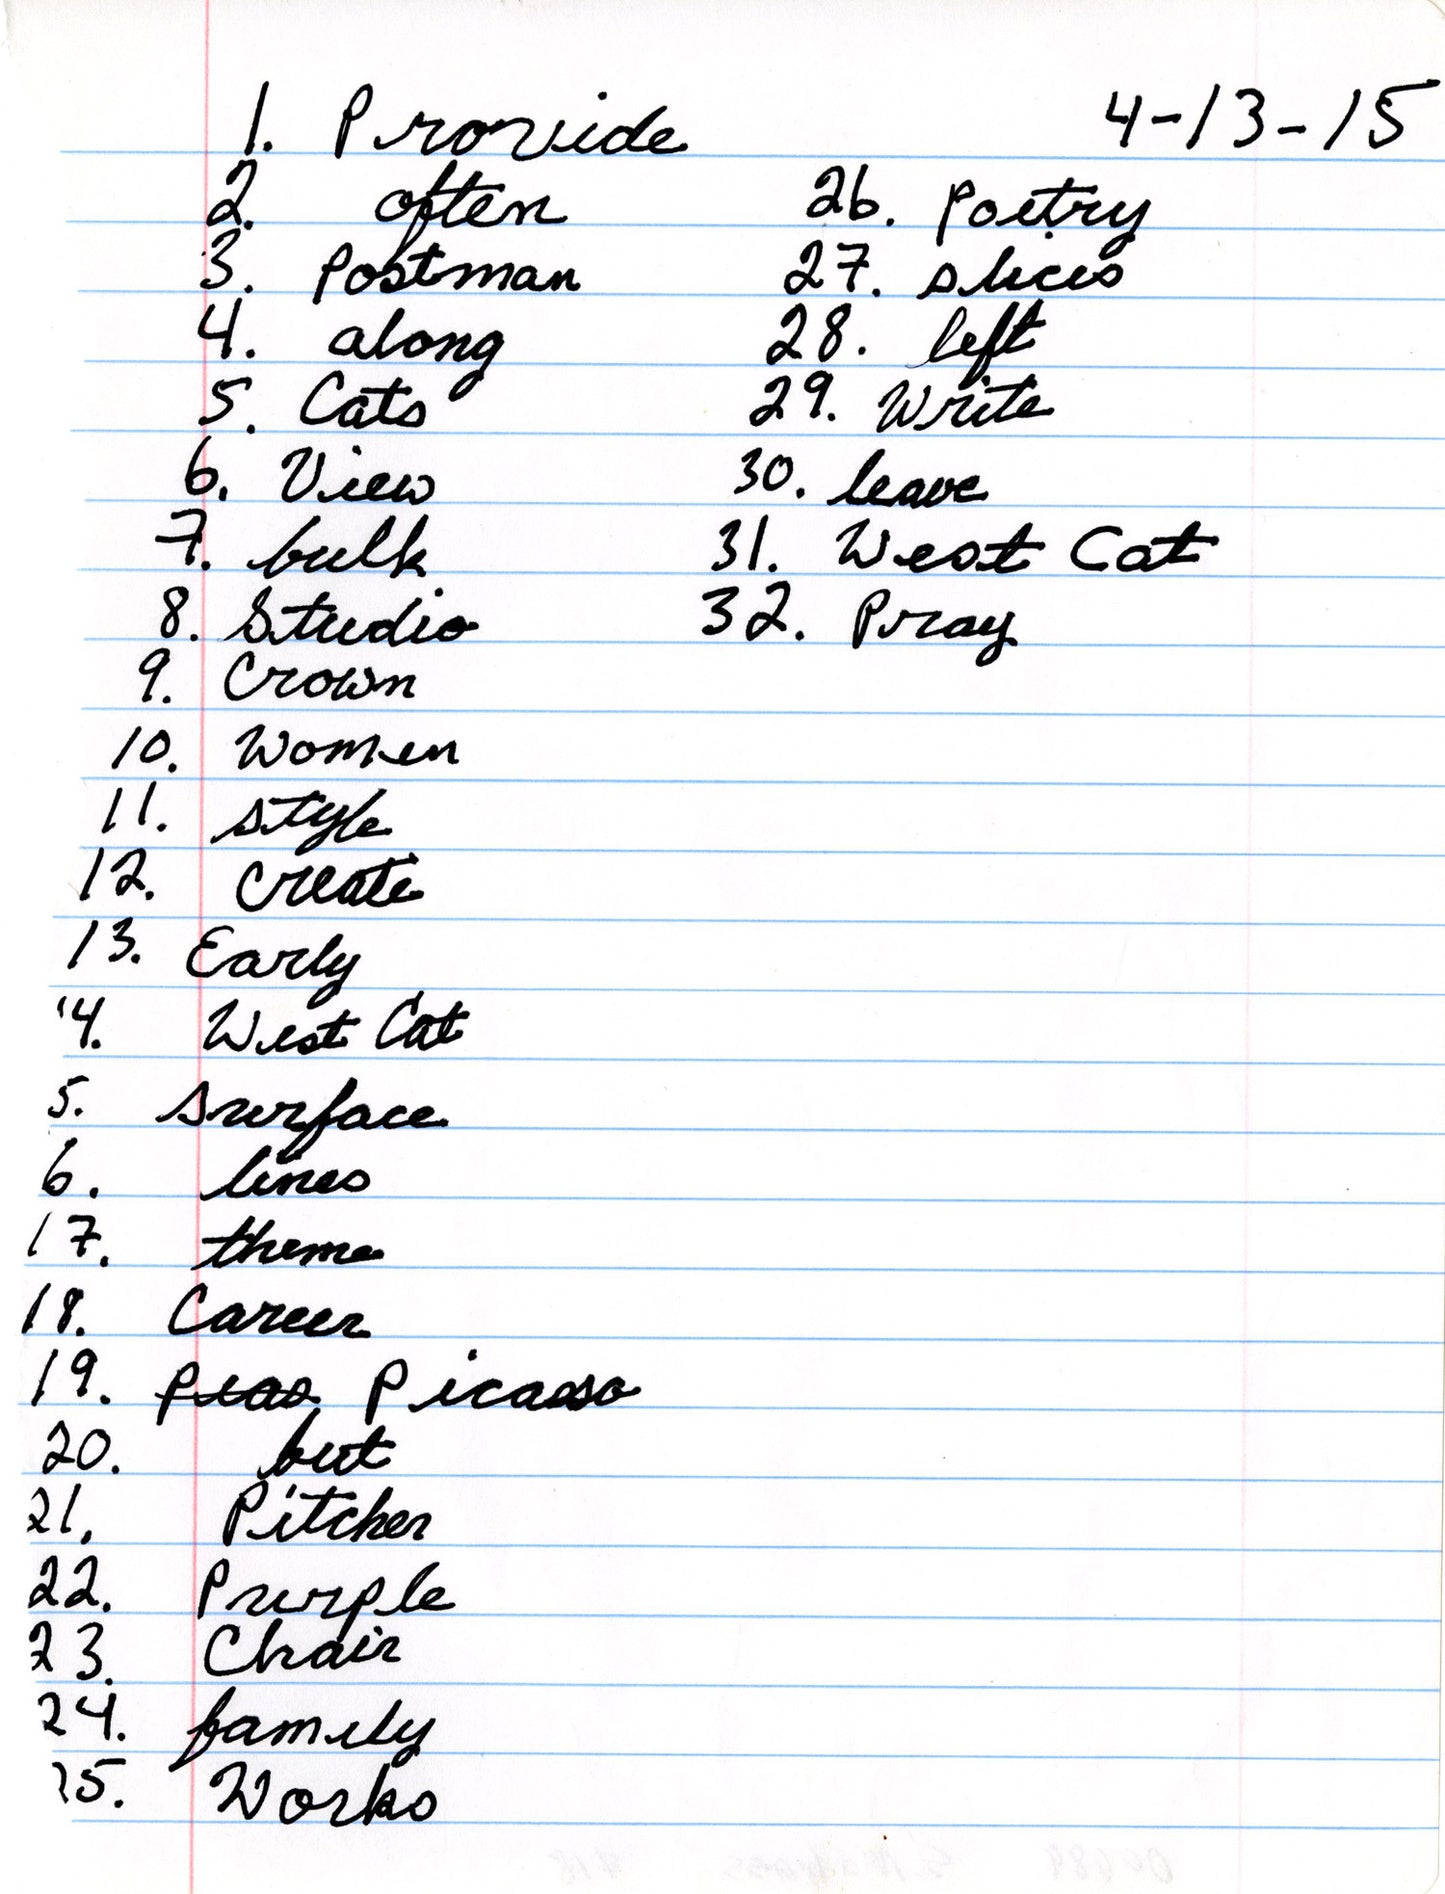 4-13-15
1. Provide
2. often
3. Postman
4. along
5. Cats
6. View
7. bulk
8. Studio
9. Crown
10. Women
11. style
12. Create
13. Early
14. West Cat
5. surface
6. lines
17. theme
18. Career
19. Picasso
20. but
21. Pitcher
22. Purple
23. Chair
24. family
25. Works
26. Poetry
27. slices
28. left
29. Write
30. leave
31. West Cat
32. Pray